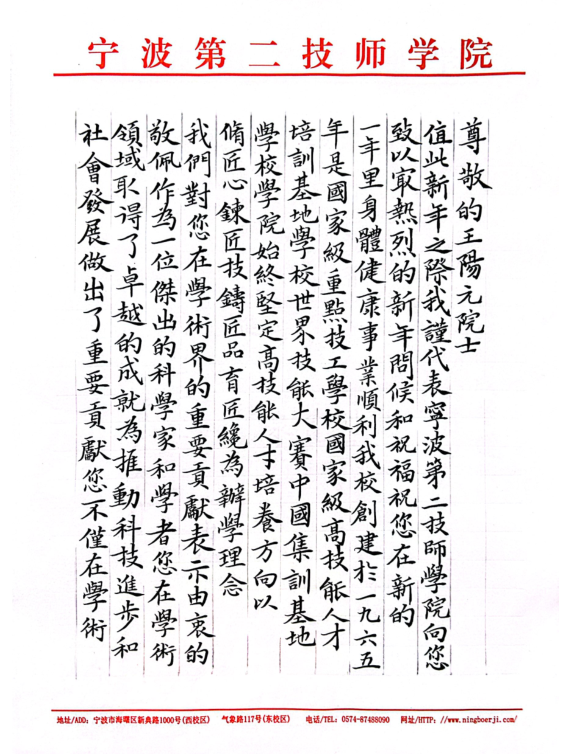 宁波第二技师学院
尊敬的王陽元院士
值此新年之際我謹代表寧波第二技師學院向您
致以寂熱烈的新年問候和祝福祝您在新的
一年里身體健康事業順利我校創建於一九六五
年是國家級重點技工學校國家級高技能人才
培訓基地學校世界技能大賽中國集訓基地
學校學院始終堅定高技能人才培養方向以
脩匠心鍊匠技鑄匠品育匠纔為辦學理念
我們對您在學術界的重要貢獻表示由衷的
敬佩作為一位傑出的科學家和學者您在學術
領域取得了卓越的成就為推動科技進步和
社會發展做出了重要貢獻您不僅在學術
地址/ADD: 宁波市海曙区新典路1000号(西校区) 气象路117号(东校区) 电话/TEL: 0574-87488090 网址/HTTP: //www.ningboerji.com/